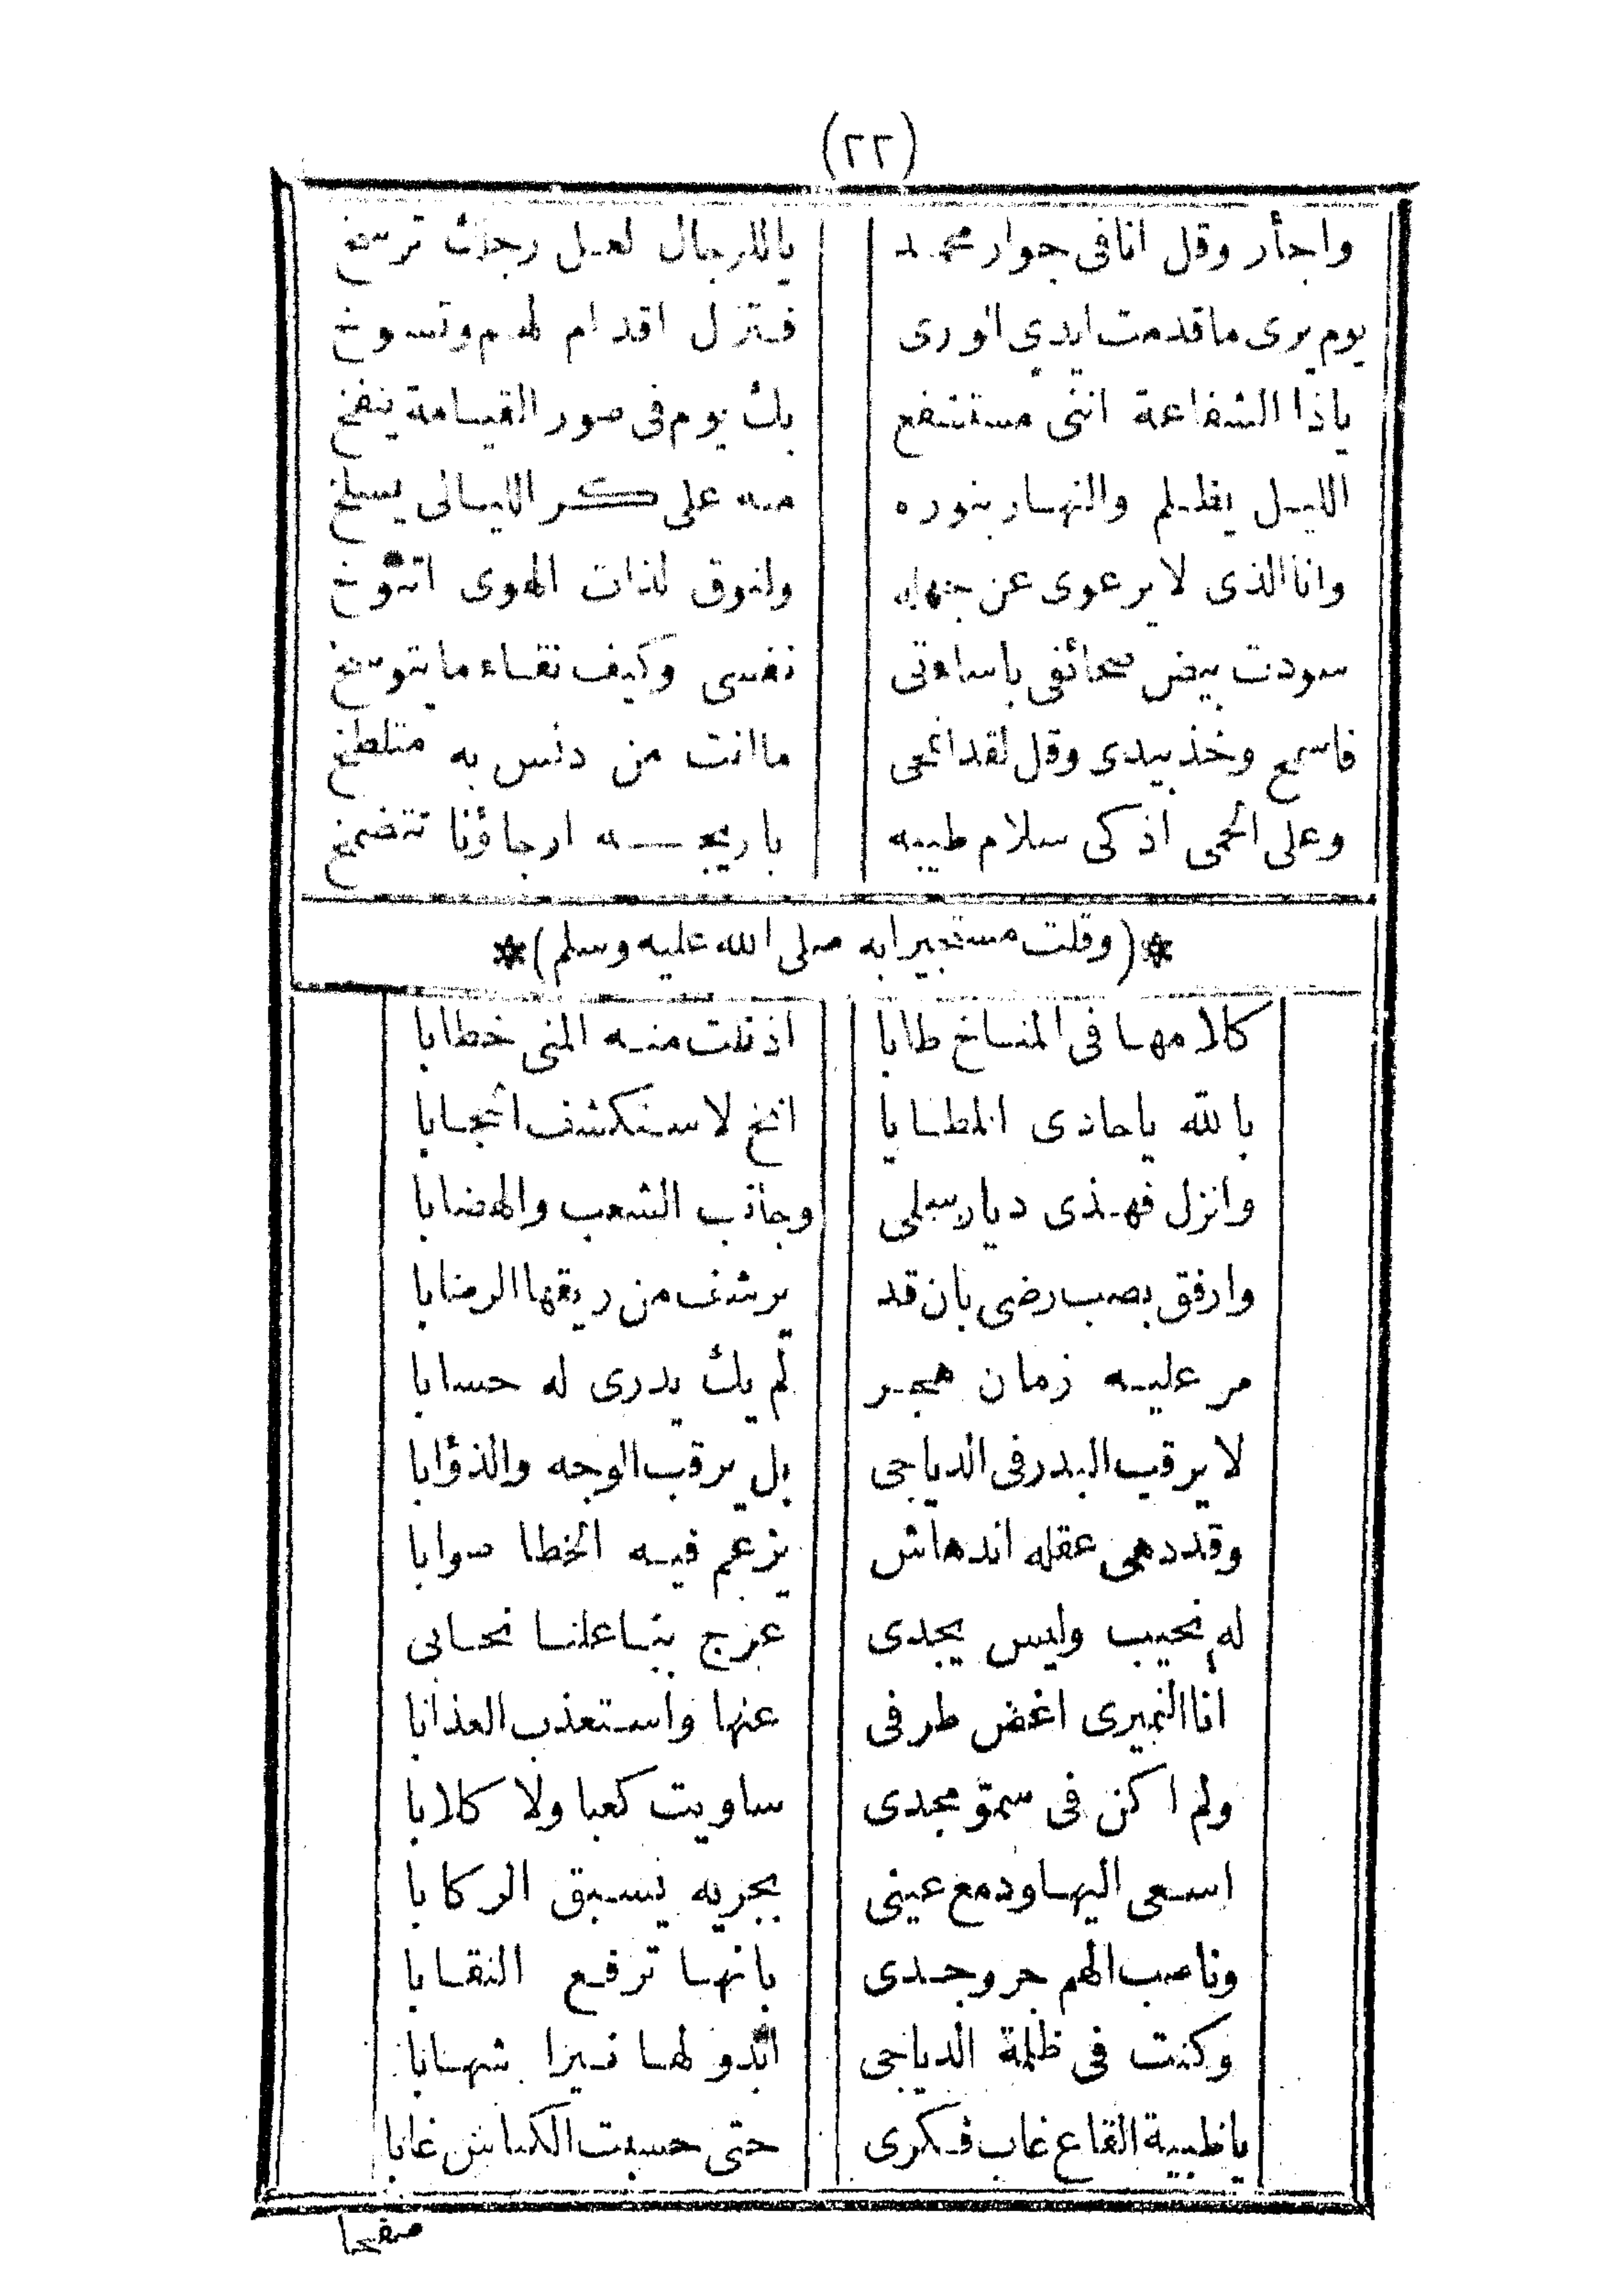 (٢٢)
واجأر وقل انا فى جوار محمد ياللرجال لعل رجلك ترسخ
يوم يرى ما قدمت ايدى الورى فتزل اقدام لهم وتسوخ
ياذا الشفاعة اننى مستشفع بك يوم فى صور القيامة ينفخ
الليل يظلم والنهار بنوره منه على كر الليالى يسلخ
وانا الذى لا يرعوى عن جهله ولذوق لذات الهوى
سودت بيض صحائفى باساءتى نفسى وكيف نقاء ما يتوسخ
فاسمع وخذ بيدى وقل لقد انمحى ما انت من دنس به متلطخ
وعلى الحمى اذكى سلام طيبه باريجه ارجاؤنا تتضمخ
*(وقلت مستجيرا به صلى الله عليه وسلم)*
كلامها فى المناخ طابا اذ نلت منه المنى خطابا
بالله يا حادى المطايا انخ لاستكشف الحجابا
وانزل فهذى ديار سلمى وجاذب الشعب والهضابا
وارفق بصب رضى بان قد يرشف من ريقها الرضابا
مر عليه زمان هجر لم يك يدرى له حسابا
لا يرقب البدر فى الدياجى بل يرقب الوجه والذؤابا
وقد دهى عقله اندهاش يزعم فيه الخطا صوابا
له نحيب وليس يجدى عرج بنا علنا نحابى
انا النميرى اغض طرفى عنها واستعذب العذابا
ولم اكن فى سموّ مجدى ساويت كعبا ولا كلابا
اسعى اليها ودمع عينى بجريه يسبق الركابا
وناصب الهم جر وجدى بانها ترفع النقابا
وكنت فى ظلمة الدياجى ابدو لها نيرا شهابا
يا ظبية القاع غاب فكرى حتى حسبت الكناس غابا
صفحا